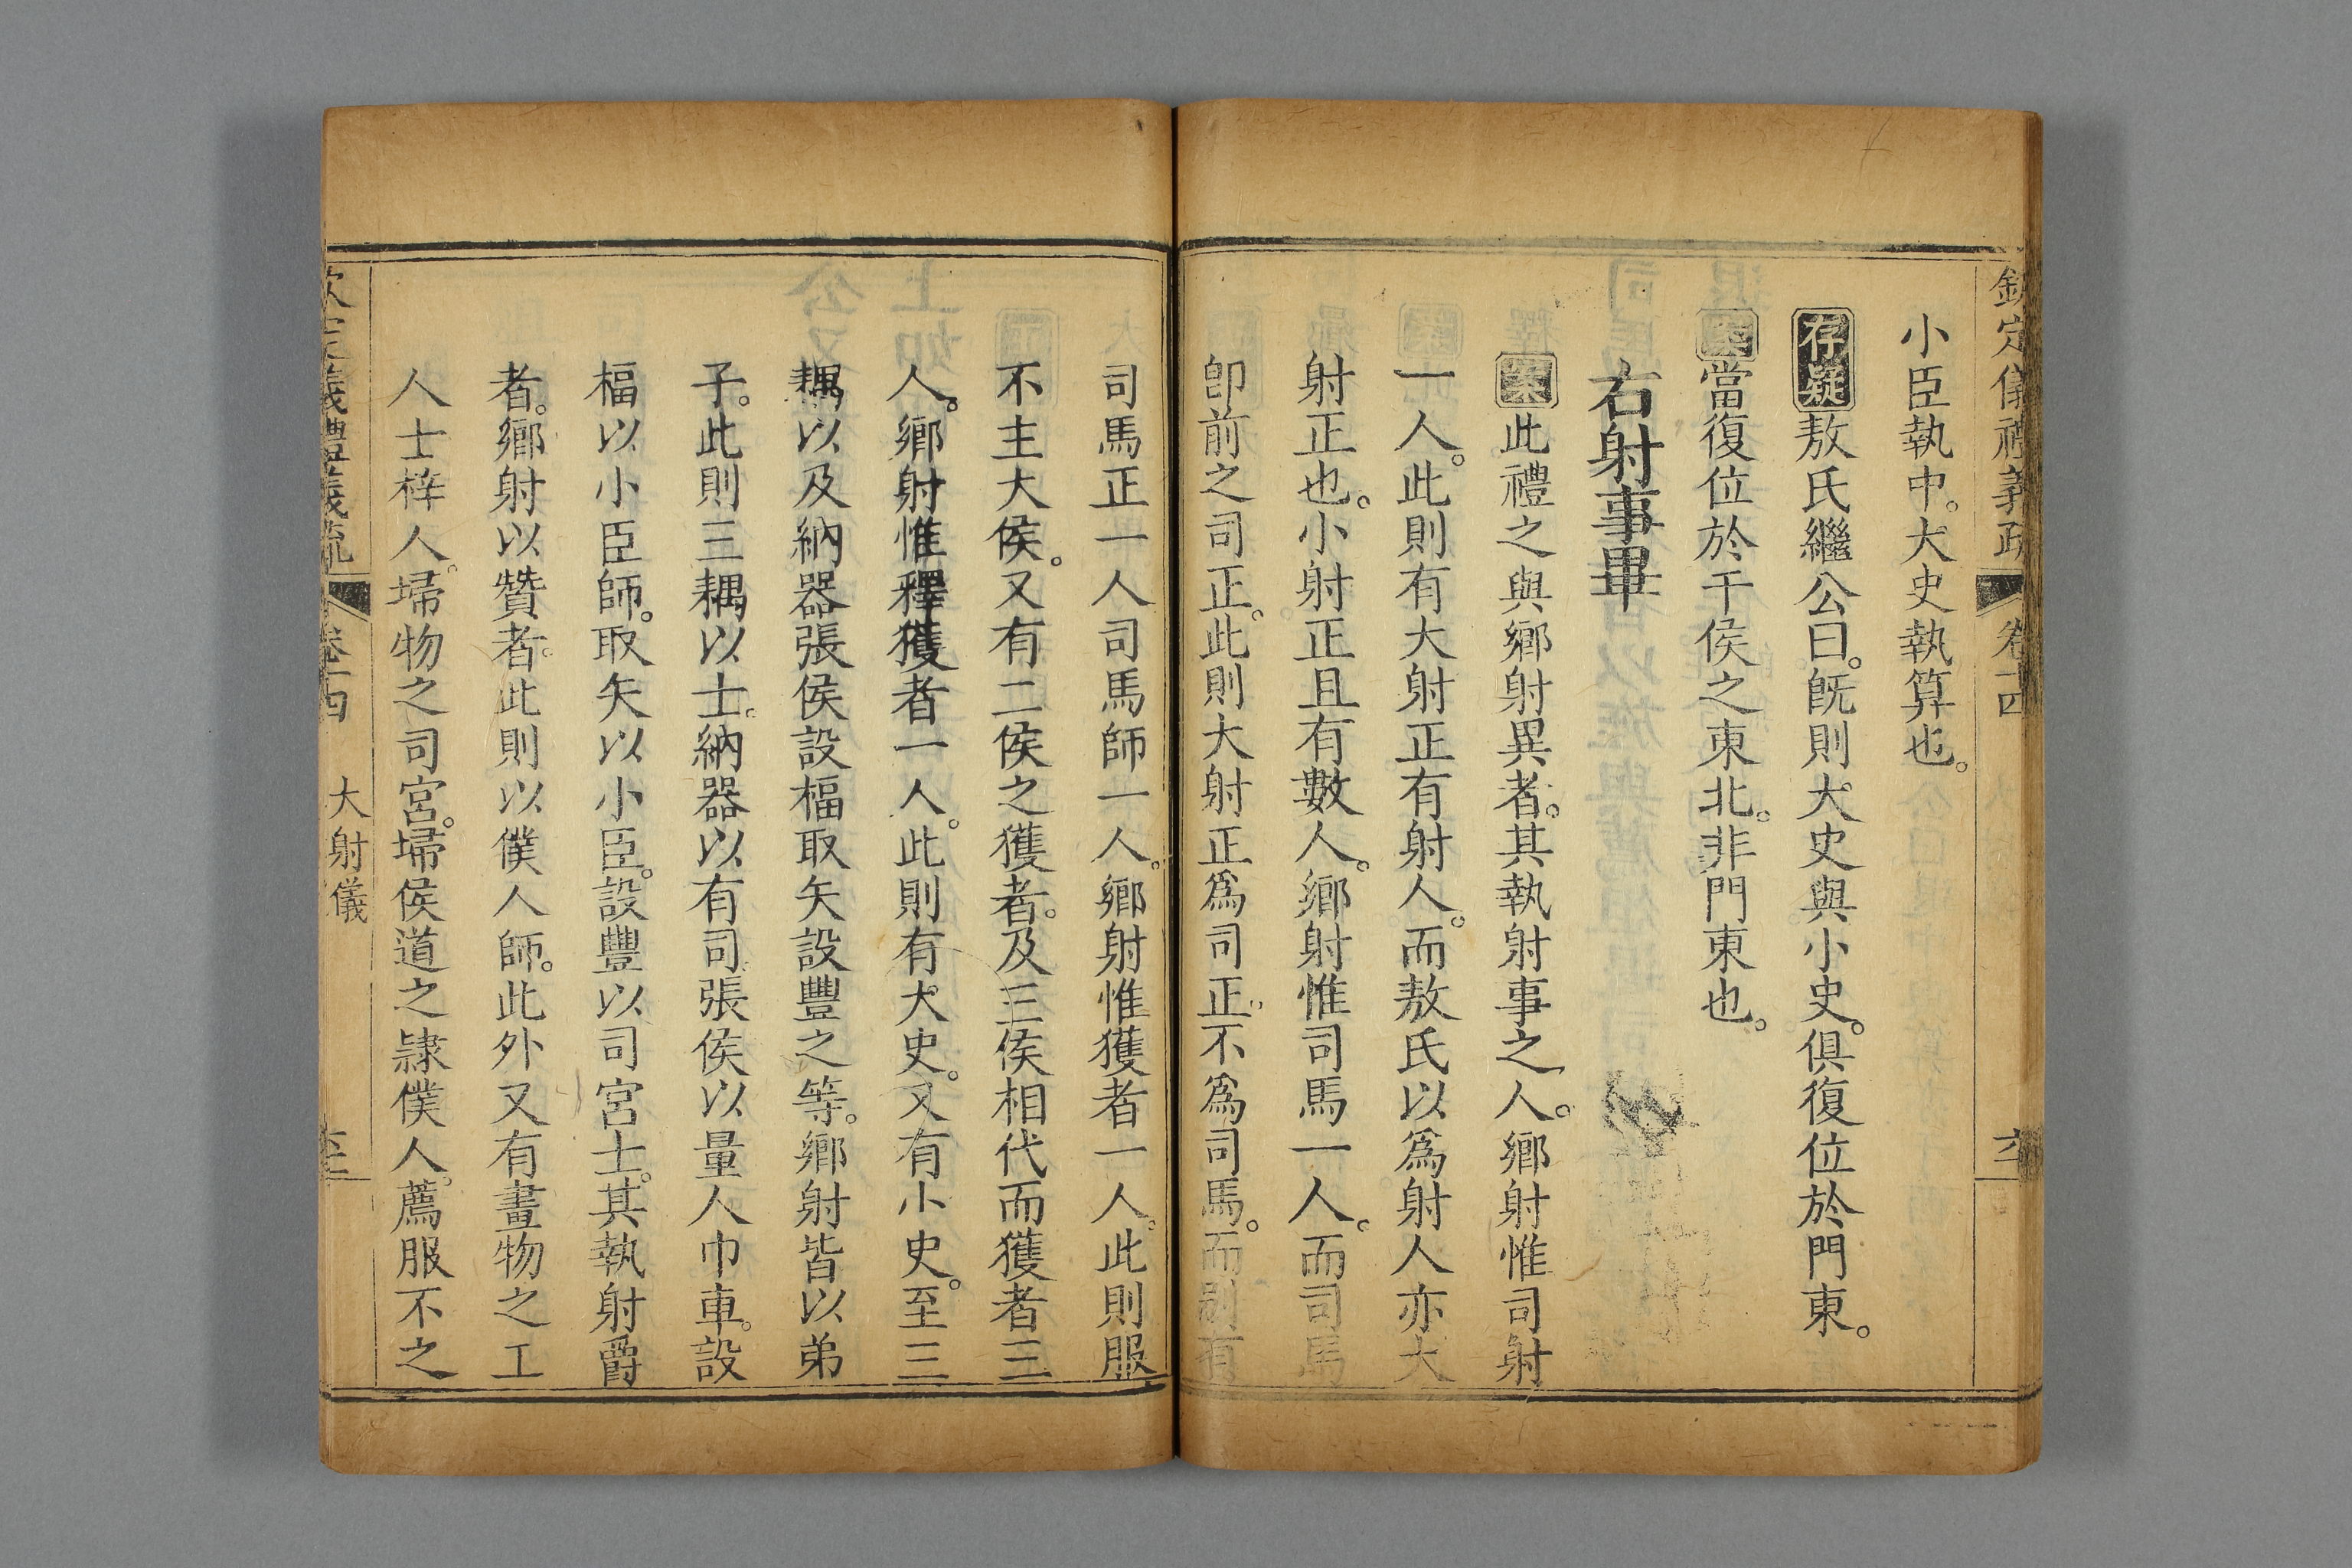 欽定儀禮義疏 卷十四
小臣執中。大史執算也。
存疑敖氏繼公曰。旣則大史與小史。俱復位於門東。
案當復位於干侯之東北。非門東也。
右射事畢
案此禮之與鄉射異者。其執射事之人。鄉射惟司射
一人。此則有大射正有射人。而敖氏以爲射人亦大
射正也。小射正且有數人。鄉射惟司馬一人。而司馬
卽前之司正。此則大射正爲司正。不爲司馬。而別有
司馬正一人司馬師一人。鄉射惟獲者一人。此則服
不主大侯。又有二侯之獲者。及三侯相代而獲者三
人。鄉射惟釋獲者一人。此則有大史。又有小史。至三
耦以及納器張侯設楅取矢設豐之等。鄉射皆以弟
子。此則三耦以士。納器以有司張侯以量人巾車。設
楅以小臣師。取矢以小臣。設豐以司宮士。其執射爵
者。鄉射以贊者。此則以僕人師。此外又有畫物之工
人士梓人。埽物之司宮。埽侯道之隷僕人。薦服不之
欽定儀禮義疏 卷十四 大射儀